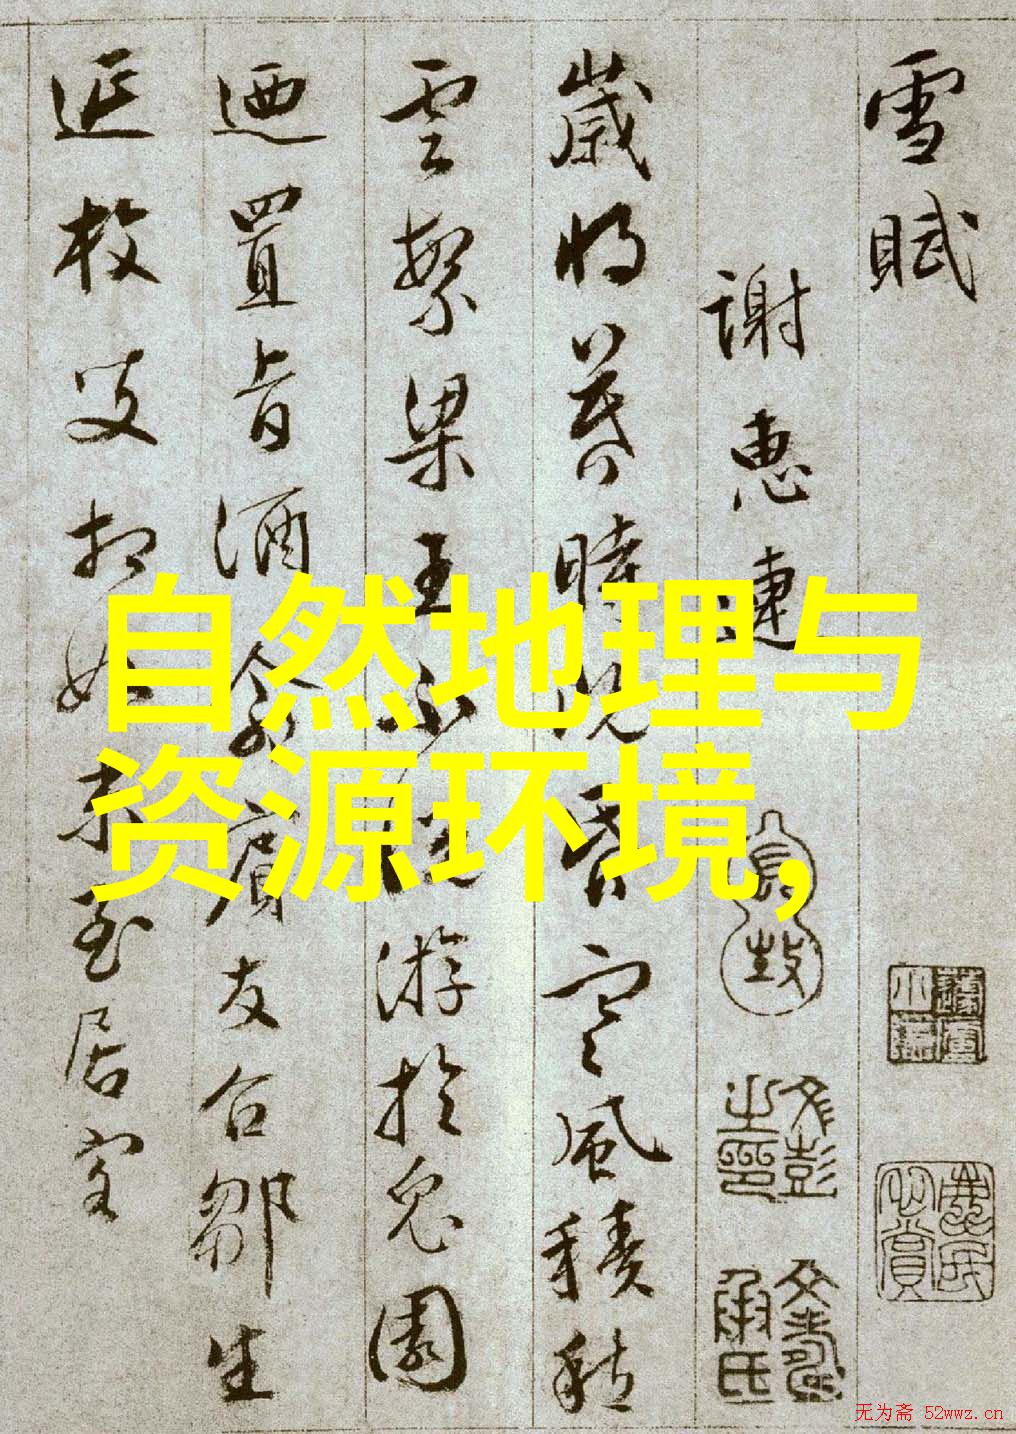 雪賦
謝惠連
歲將暮時既昏寒風積愁
雲繁梁王不悅游於兔園
迺置旨酒命賓友召鄒生
延枚叟相如末至居客
自然地理与
资源环境,
文彭之印
无为斋 52wwz.cn